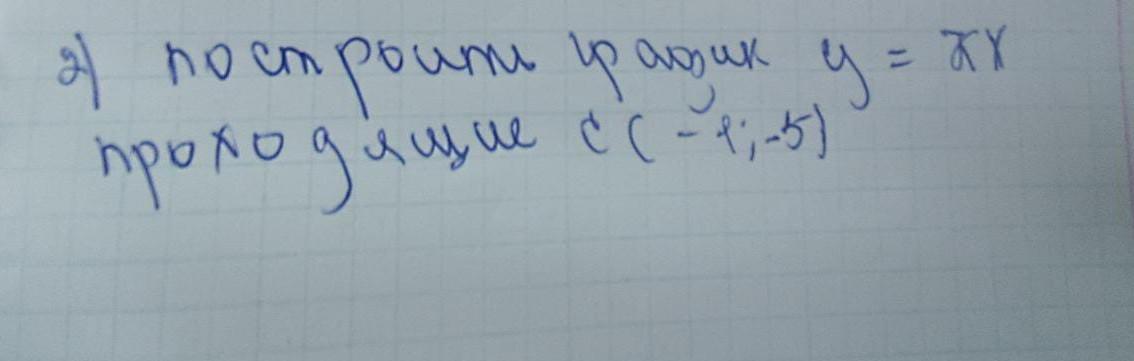 2) построити график y = πx
проходящие C(-1;-5)